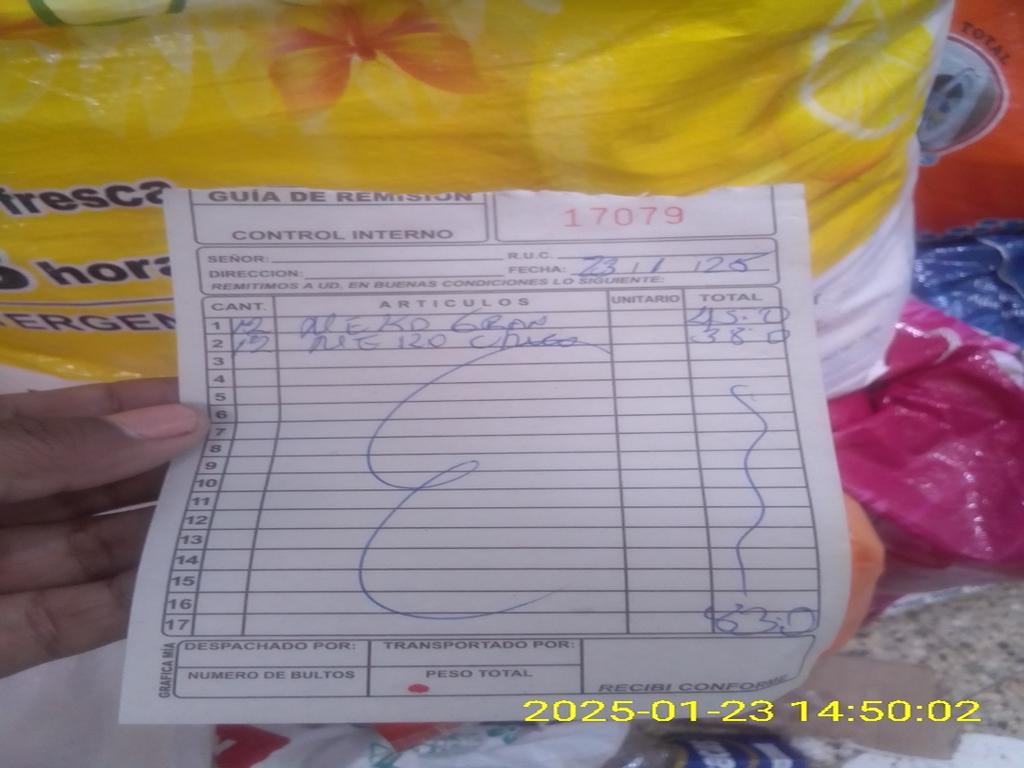 TOTAL
fresca
hora
TERGEN
GUÍA DE REMISIÓN
CONTROL INTERNO
17079
SEÑOR:
R.U.C.
DIRECCION:
FECHA: 23/1/25
REMITIMOS A UD. EN BUENAS CONDICIONES LO SIGUIENTE:
CANT. ARTICULOS UNITARIO TOTAL
1 12 45.0
2 38.0
3
4
5
6
7
8
9
10
11
12
13
14
15
16
17
DESPACHADO POR: TRANSPORTADO POR:
NUMERO DE BULTOS PESO TOTAL
RECIBI CONFORME
GRAFICA MIA
2025-01-23 14:50:02